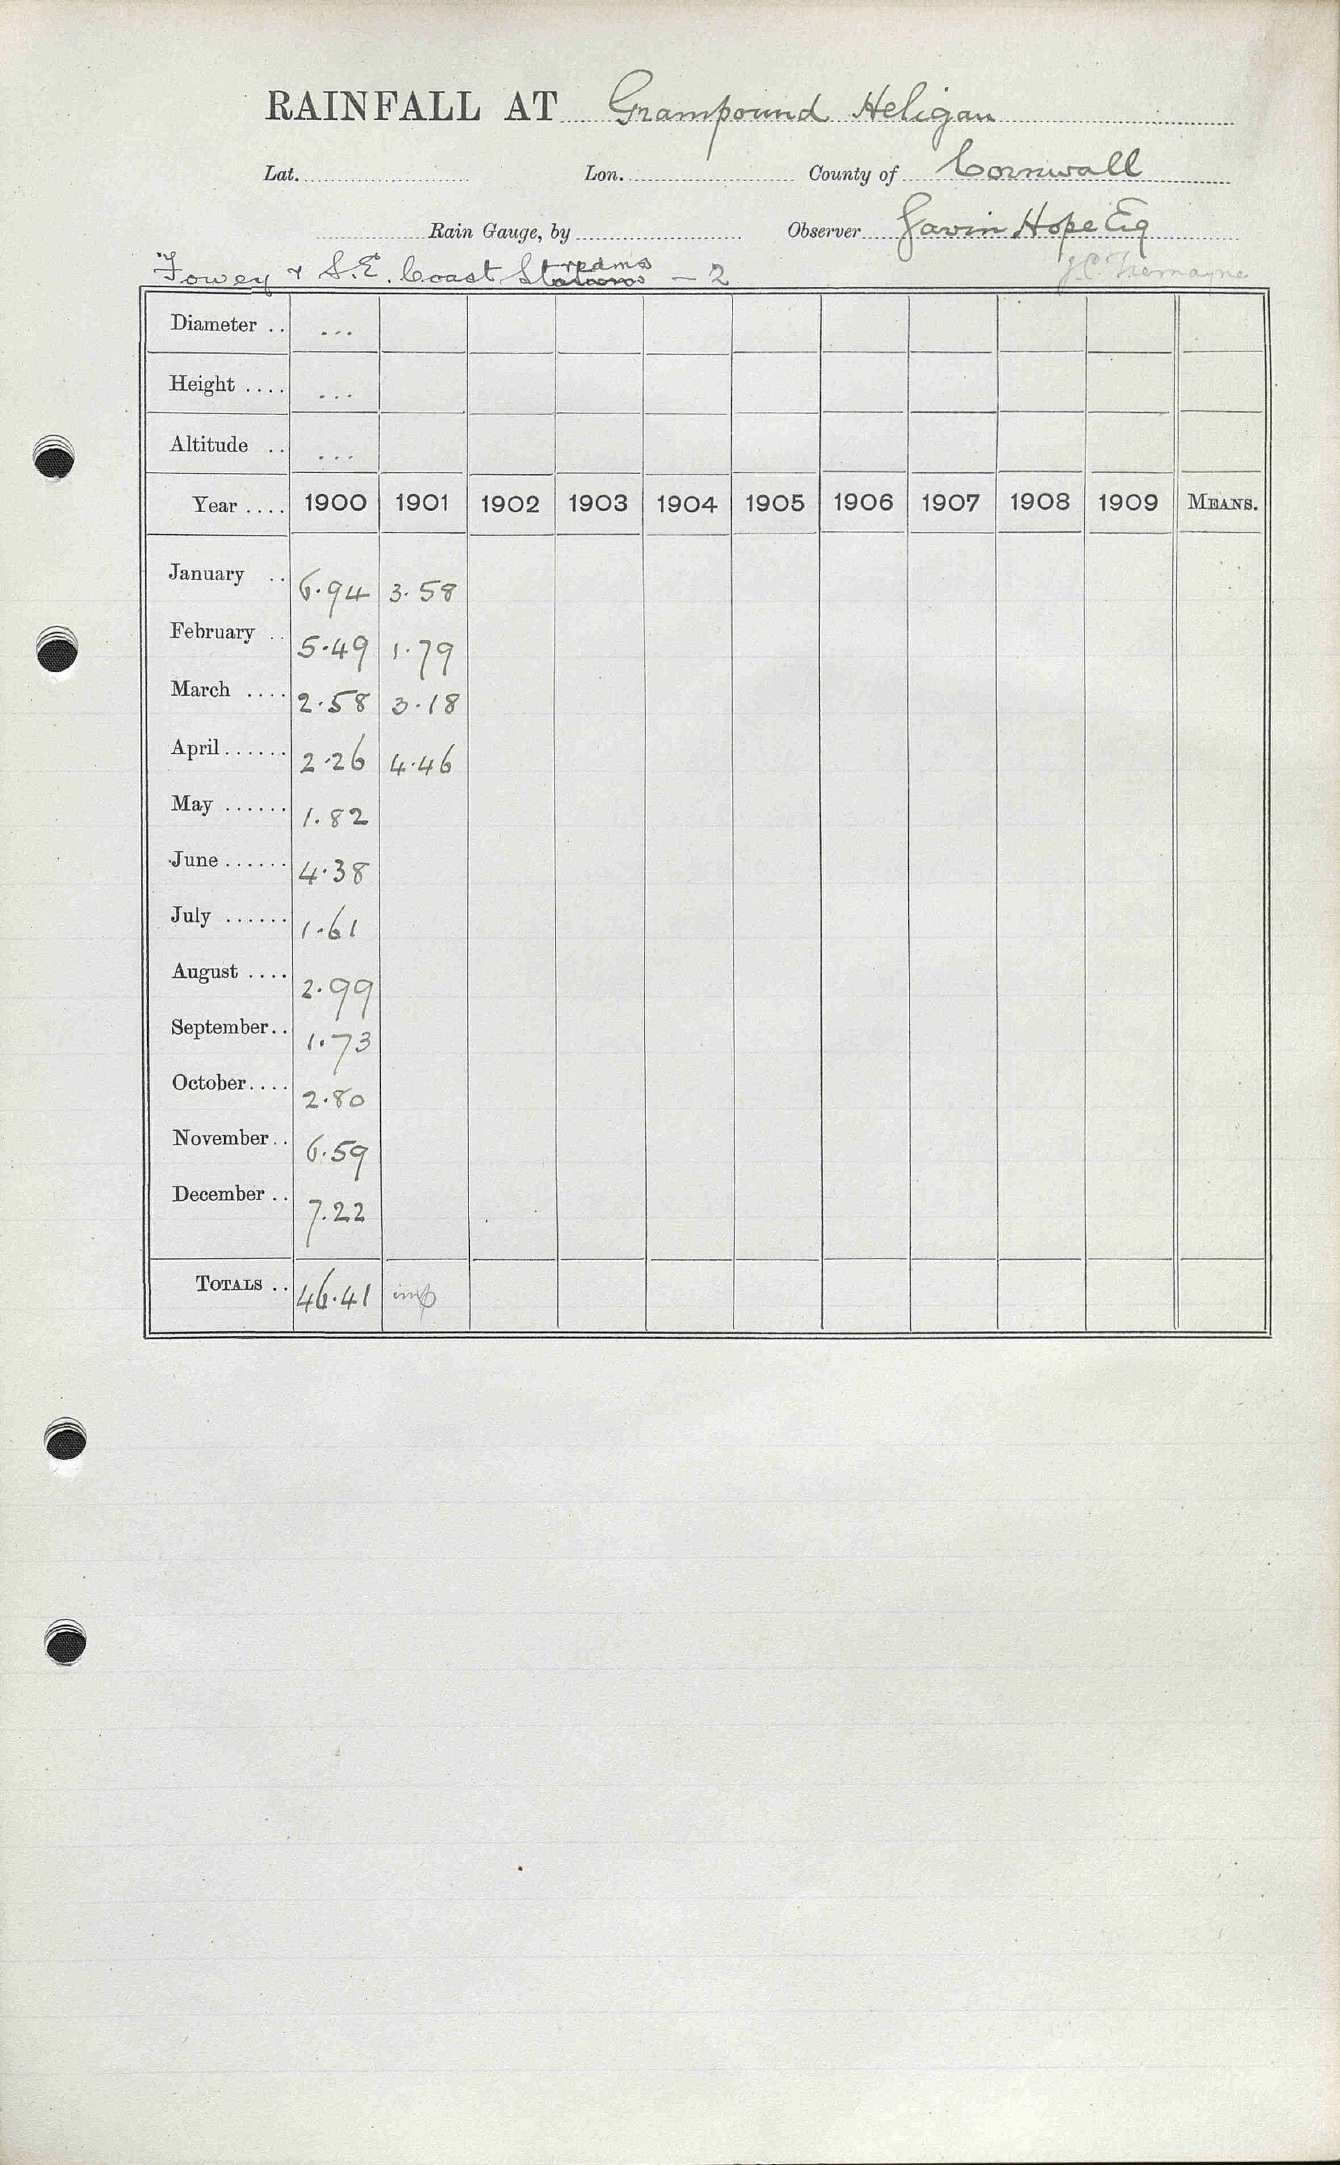 RAINFALL AT Grampound Heligan
Lat. Lon. County of Cornwall
Rain Gauge, by Observer Gavin Hope Esq
Fowey & S.E. Coast Streams - 2 J.C. Tremayne
Diameter .. ...
Height .... ...
Altitude .. ...
Year .... 1900 1901 1902 1903 1904 1905 1906 1907 1908 1909 MEANS.
January .. 6.94 3.58
February .. 5.49 1.79
March .... 2.58 3.18
April ...... 2.26 4.46
May ...... 1.82
June ...... 4.38
July ...... 1.61
August .... 2.99
September .. 1.73
October .... 2.80
November .. 6.59
December .. 7.22
TOTALS .. 46.41 imp